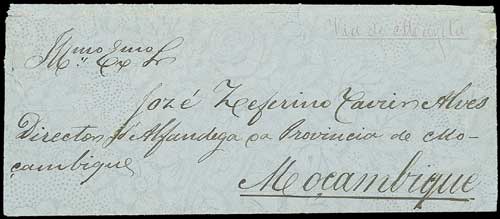 Via de
Illmo Exmo Sr
José Zeferino Xavier Alves
Director d'Alfandega da Provincia de Mo-
çambique
Moçambique